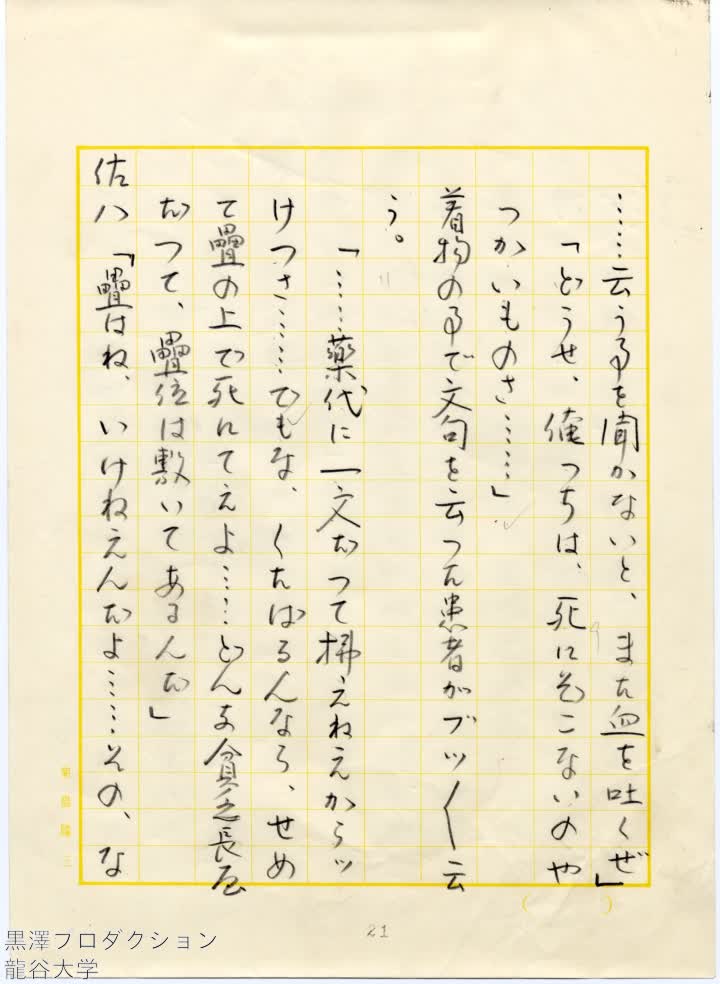 ……云う事を聞かないと、また血を吐くぜ」
「どうせ、俺つちは、死にぞこないのや
つかいものさ……」
着物の事で文句を云つた患者がブツ〱云
う。
「……薬代に一文だつて拂えねえからッ
けつさ……でもな、くたばるんなら、せめ
て疊の上で死にてえよ……どんな貧乏長屋
だつて、疊位は敷いてあるんだ」
佐八「疊はね、いけねえんだよ……その、な
21
黒澤プロダクション
龍谷大学